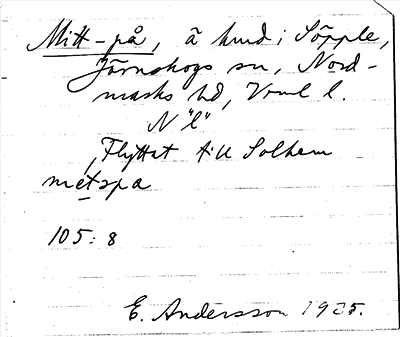 Mitt-på, å hund i Söpple,
Järnskogs sn, Nord-
marks hd, Vrml l.
N "l"
Flyttat till Solhem
metspa
105: 8
E. Andersson 1925.